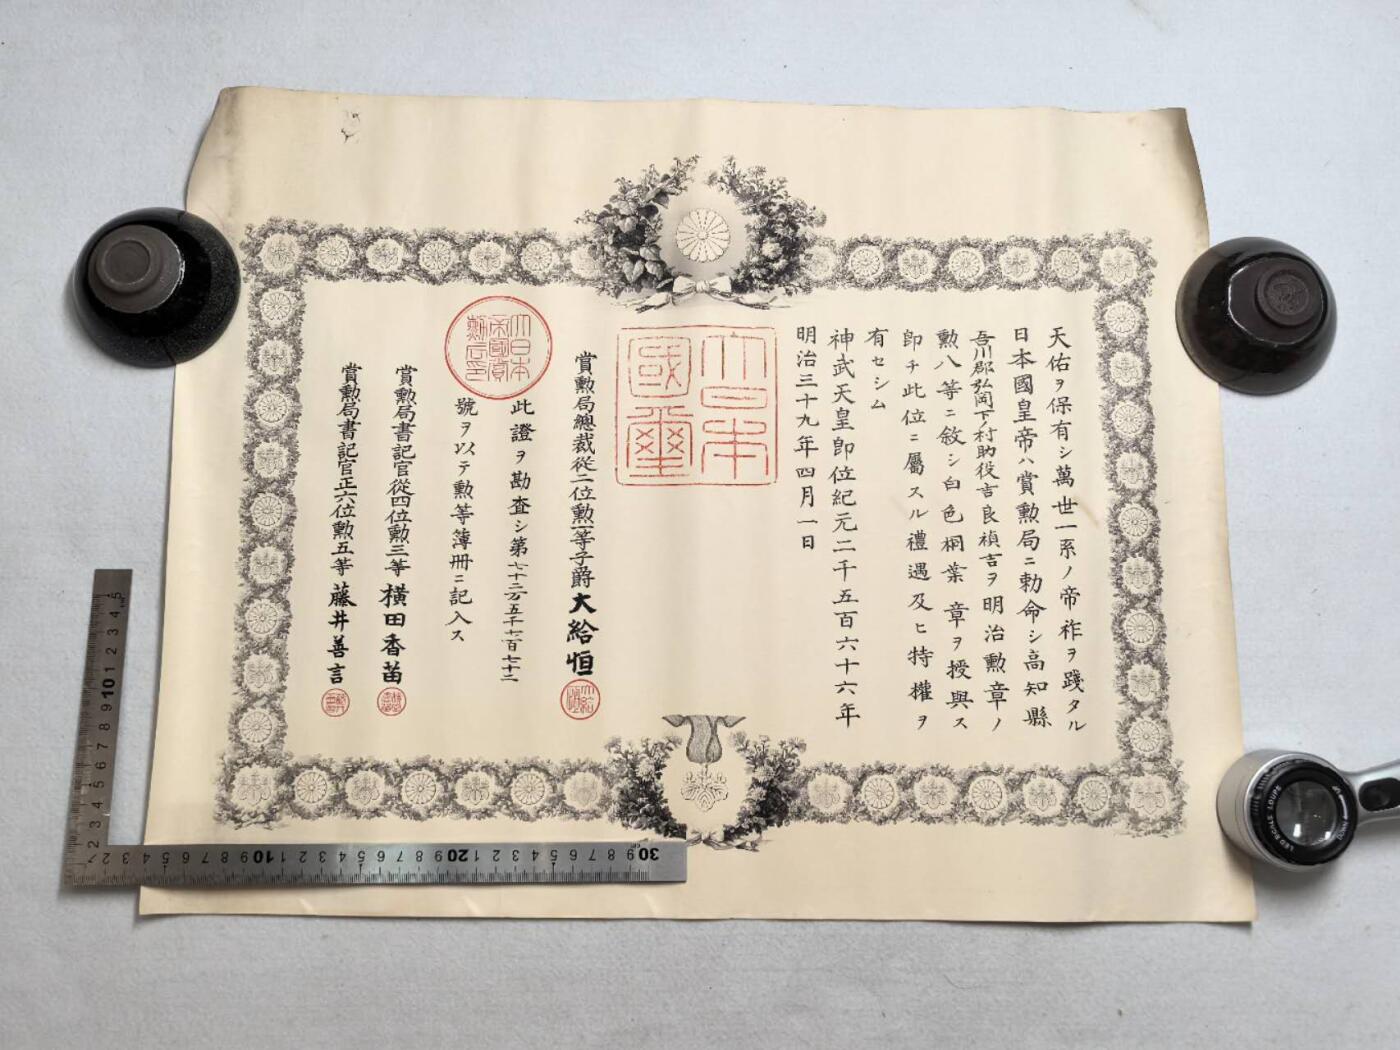 天佑ヲ保有シ萬世一系ノ帝祚ヲ踐タル
日本國皇帝ハ賞勲局ニ勅命シ高知縣
吾川郡弘岡下ノ村助役吉良禎吉ヲ明治勲章ノ
勲八等ニ敘シ白色桐葉章ヲ授與ス
即チ此位ニ屬スル禮遇及ヒ特權ヲ
有セシム
神武天皇即位紀元二千五百六十六年
明治三十九年四月一日
大日本國璽
賞勲局總裁從二位勲一等子爵大給恒
此證ヲ勘査シ第七十二万五千七百七十二
號ヲ以テ勲等簿冊ニ記入ス
大日本帝國賞勲局印
賞勲局書記官從四位勲三等橫田香苗
賞勲局書記官正六位勲五等藤井善言
5 4 3 2 1 10 9 8 7 6 5 4 3 2
2 3 4 5 6 7 8 9 10 1 2 3 4 5 6 7 8 9 20 1 2 3 4 5 6 7 8 9 30